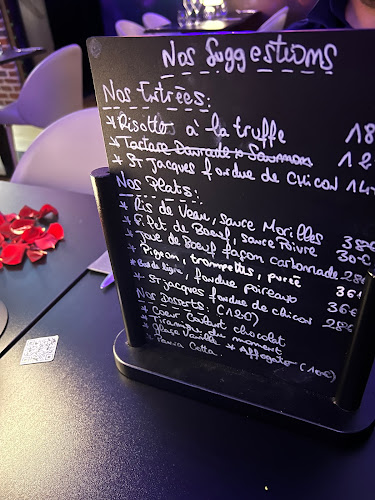 Nos Suggestions
Nos Entrées:
* Risotto à la truffe 18
* Tartare Daurade & Saumon 12
* St Jacques fondue de chicon 14
Nos Plats:
* Ris de Veau, sauce Morilles 38€
* Filet de Boeuf, sauce Poivre 30€
* Joue de Boeuf façon carbonnade 28€
* Pigeon, trompettes, purée 36
* fondue poireaux 36€
* St Jacques fondue de chicon 28€
Nos Desserts: (12€)
* Coeur Coulant chocolat
* Tiramisu du moment
* Glace Vanille * Affogato (10€)
* Panna Cotta